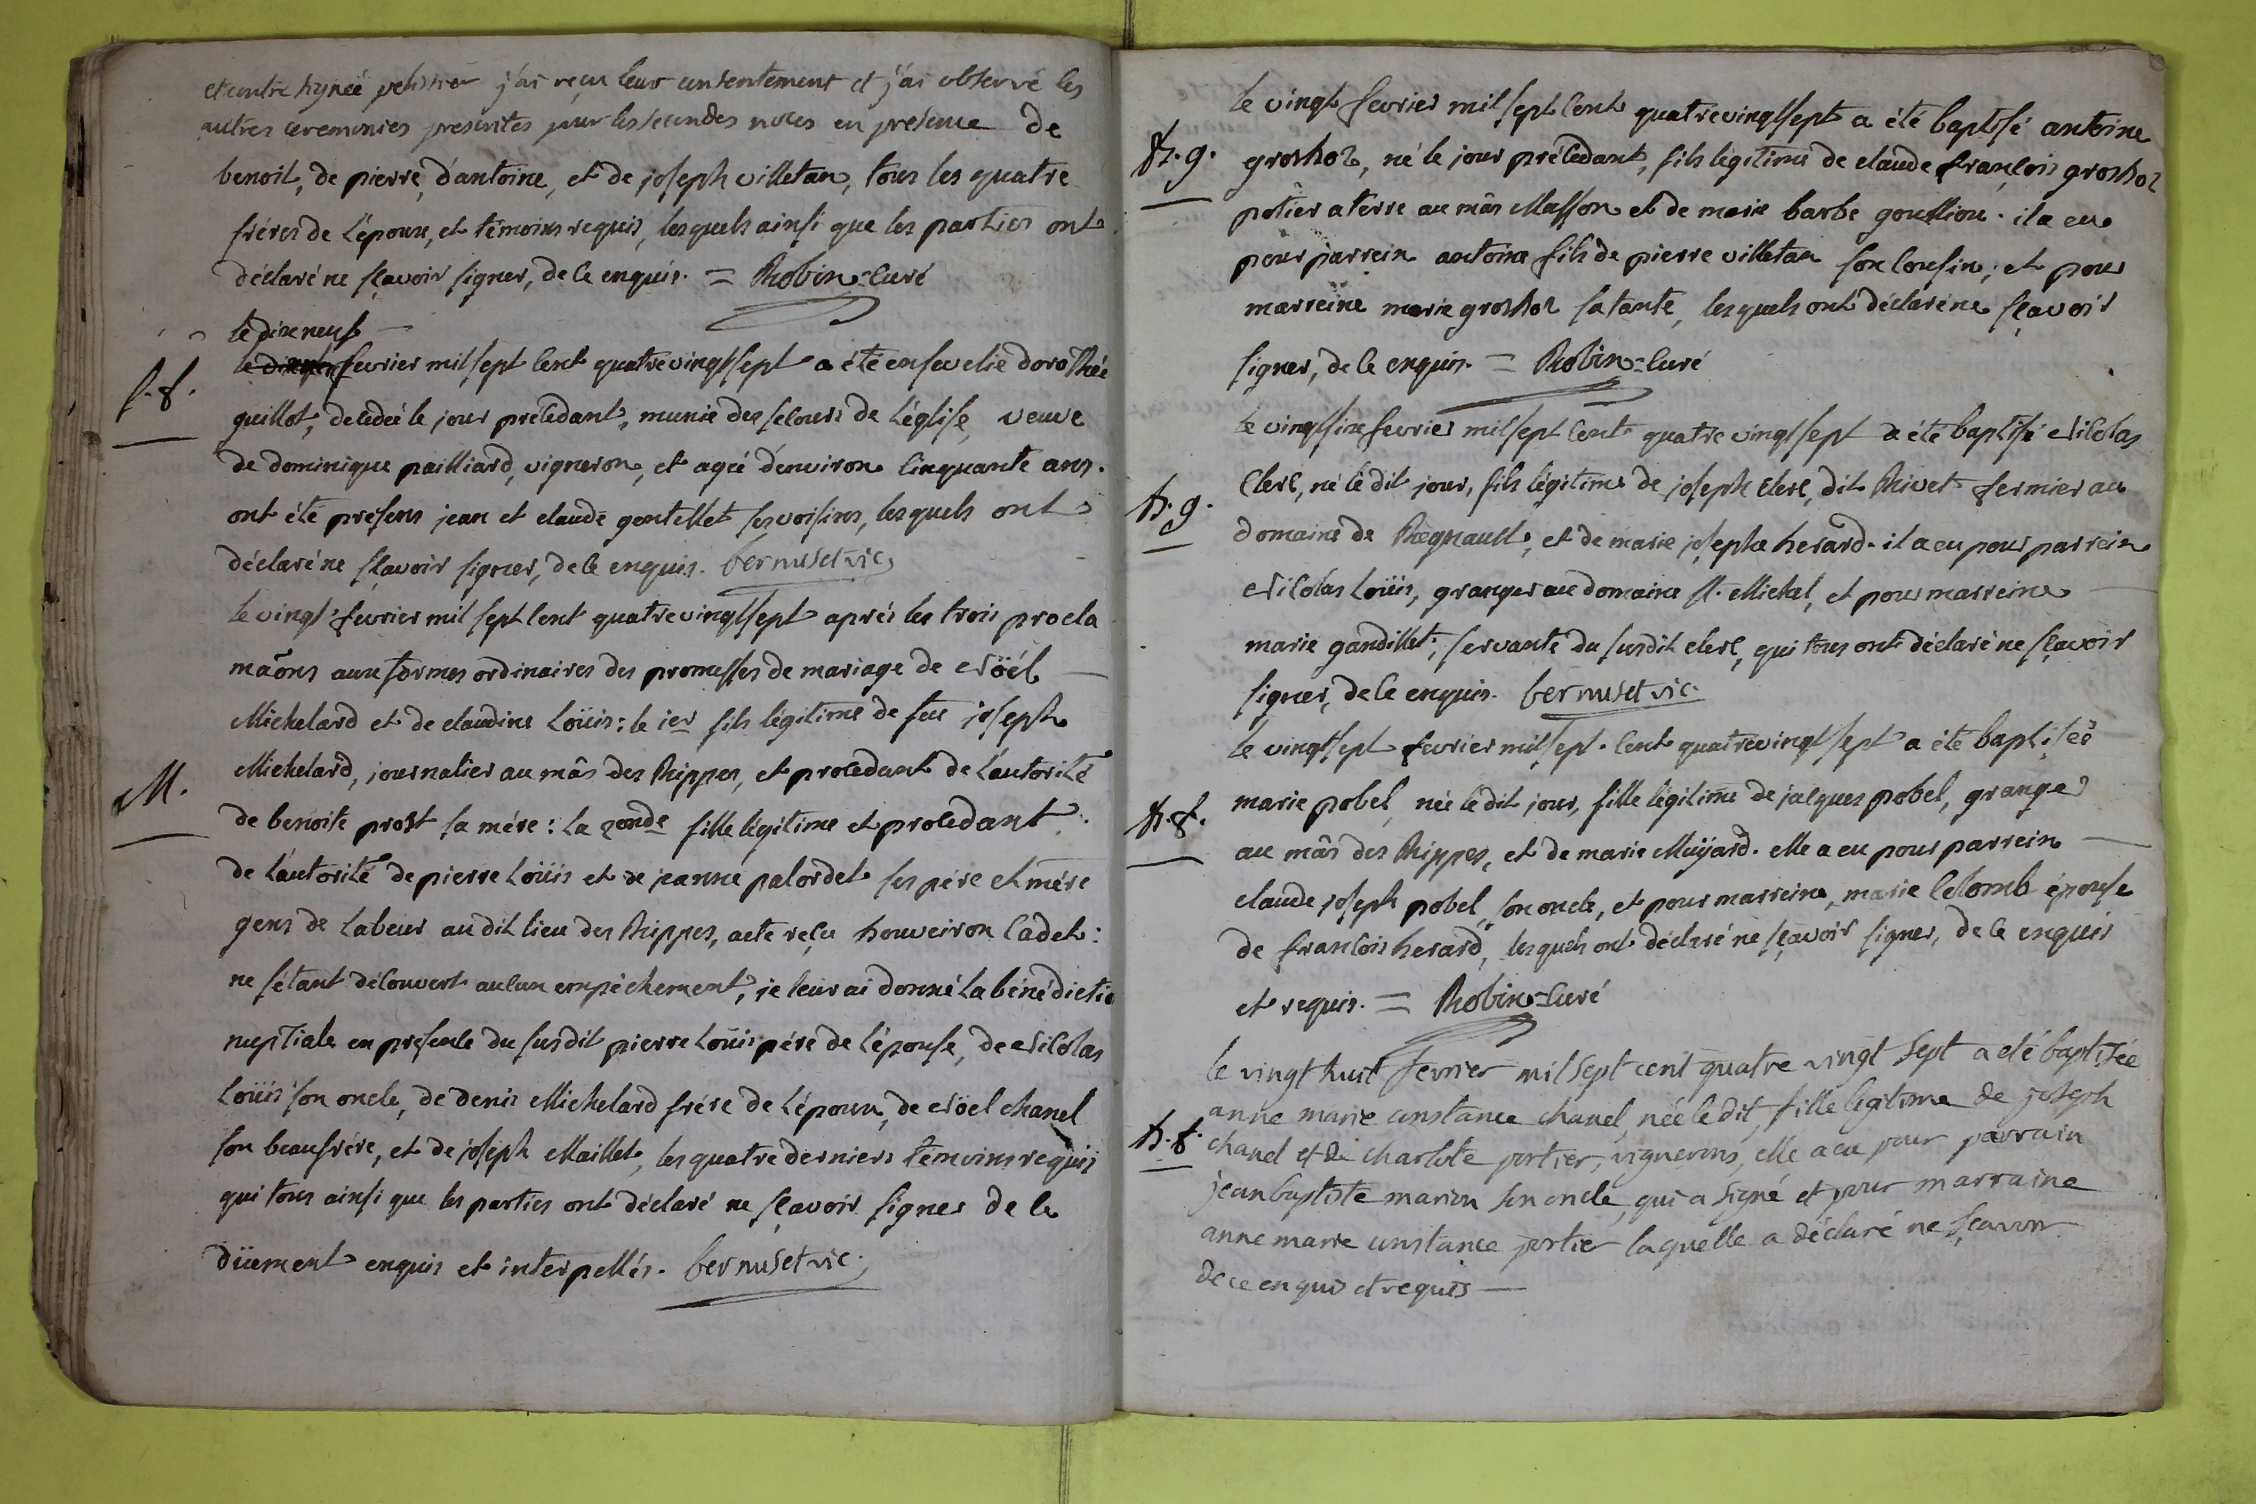 et contresignée pelissier j'ai reçu leur consentement et j'ai observé les
autres ceremonies prescrites pour les secondes noces en presence de
benoit, de pierre, d'antoine, et de joseph villetan, tous les quatre
fréres de l'époux, et témoins requis, lesquels ainsi que les parties ont
déclaré ne sçavoir signer, de ce enquis. = Robin-curé
le dixneuf
S. f.
fevrier mil sept cent quatrevingtsept a été ensevelie dorothée
guillot, decedée le jour précedant, munie des secours de l'église, veuve
de dominique pailliard, vigneron, et agée d'environ cinquante ans.
ont été presens jean et claude gentellet ses voisins, lesquels ont
déclaré ne sçavoir signer, de ce enquis. bernuset vic.
le vingt fevrier mil sept cent quatrevingtsept aprés les trois procla
maõns aux formes ordinaires des promesses de mariage de Nöél
Michelard et de claudine Loüis: le ier fils légitime de feu joseph
M.
Michelard, journalier au mâs des Rippes, et procedant de l'autorité
de benoite prost sa mére: la 2onde fille légitime et procedant
de l'autorité de pierre Loüis et de jeanne palordet ses pére et mére
gens de labeur au dit lieu des Rippes, acte reçu houveiron Cadet:
ne s'étant découvert aucun empêchement, je leur ai donné la bénédictio
nuptiale en presence du susdit pierre Loüis pére de l'épouse, de Nicolas
Loüis son oncle, de denis Michelard frére de l'époux, de Nöel chanel
son beaufrére, et de joseph Maillet, les quatre derniers témoins requis
qui tous ainsi que les parties ont déclaré ne sçavoir signer de ce
düement enquis et interpellés. bernuset vic.
le vingt fevrier mil sept cent quatrevingtsept a été baptisé antoine
B. g.
groshoz, né le jour précedant, fils légitime de claude françois groshoz
potier a terre au mâs Masson et de marie barbe gouillion. il a eu
pour parrein antoine fils de pierre villetan son cousin; et pour
marreine marie groshoz sa tante, lesquels ont déclaré ne sçavoir
signer, de ce enquis. = Robin-curé
le vingtsix fevrier mil sept cent quatre vingtsept a été baptisé Nicolas
B. g.
Clerc, né le dit jour, fils légitime de joseph Clerc, dit Rivet fermier au
domaine de Regnault, et de marie josepha herard. il a eu pour parrein
Nicolas Loüis, granger au domaine st. Michel, et pour marreine
marie gandillet, servante du susdit clerc, qui tous ont déclaré ne sçavoir
signer, de ce enquis. bernuset vic.
le vingtsept fevrier mil sept cent quatrevingtsept a été baptisée
B. f.
marie pobel, née le dit jour, fille légitime de jacques pobel, granger
au mâs des Rippes, et de marie Muyard. elle a eu pour parrein
claude joseph pobel, son oncle, et pour marreine, marie Colomb épouse
de françois herard, lesquels ont déclaré ne sçavoir signer, de ce enquis
et requis. = Robin-curé
le vingt huit fevrier mil sept cent quatre vingt sept a eté baptisée
anne marie constance chanel, née le dit, fille legitime de joseph
B. f.
chanel et de charlote portier, vignerons, elle a eu pour parrain
jean baptiste marion son oncle, qui a signé et pour marraine
anne marie constance portier laquelle a déclaré ne sçavoir
de ce enquis et requis